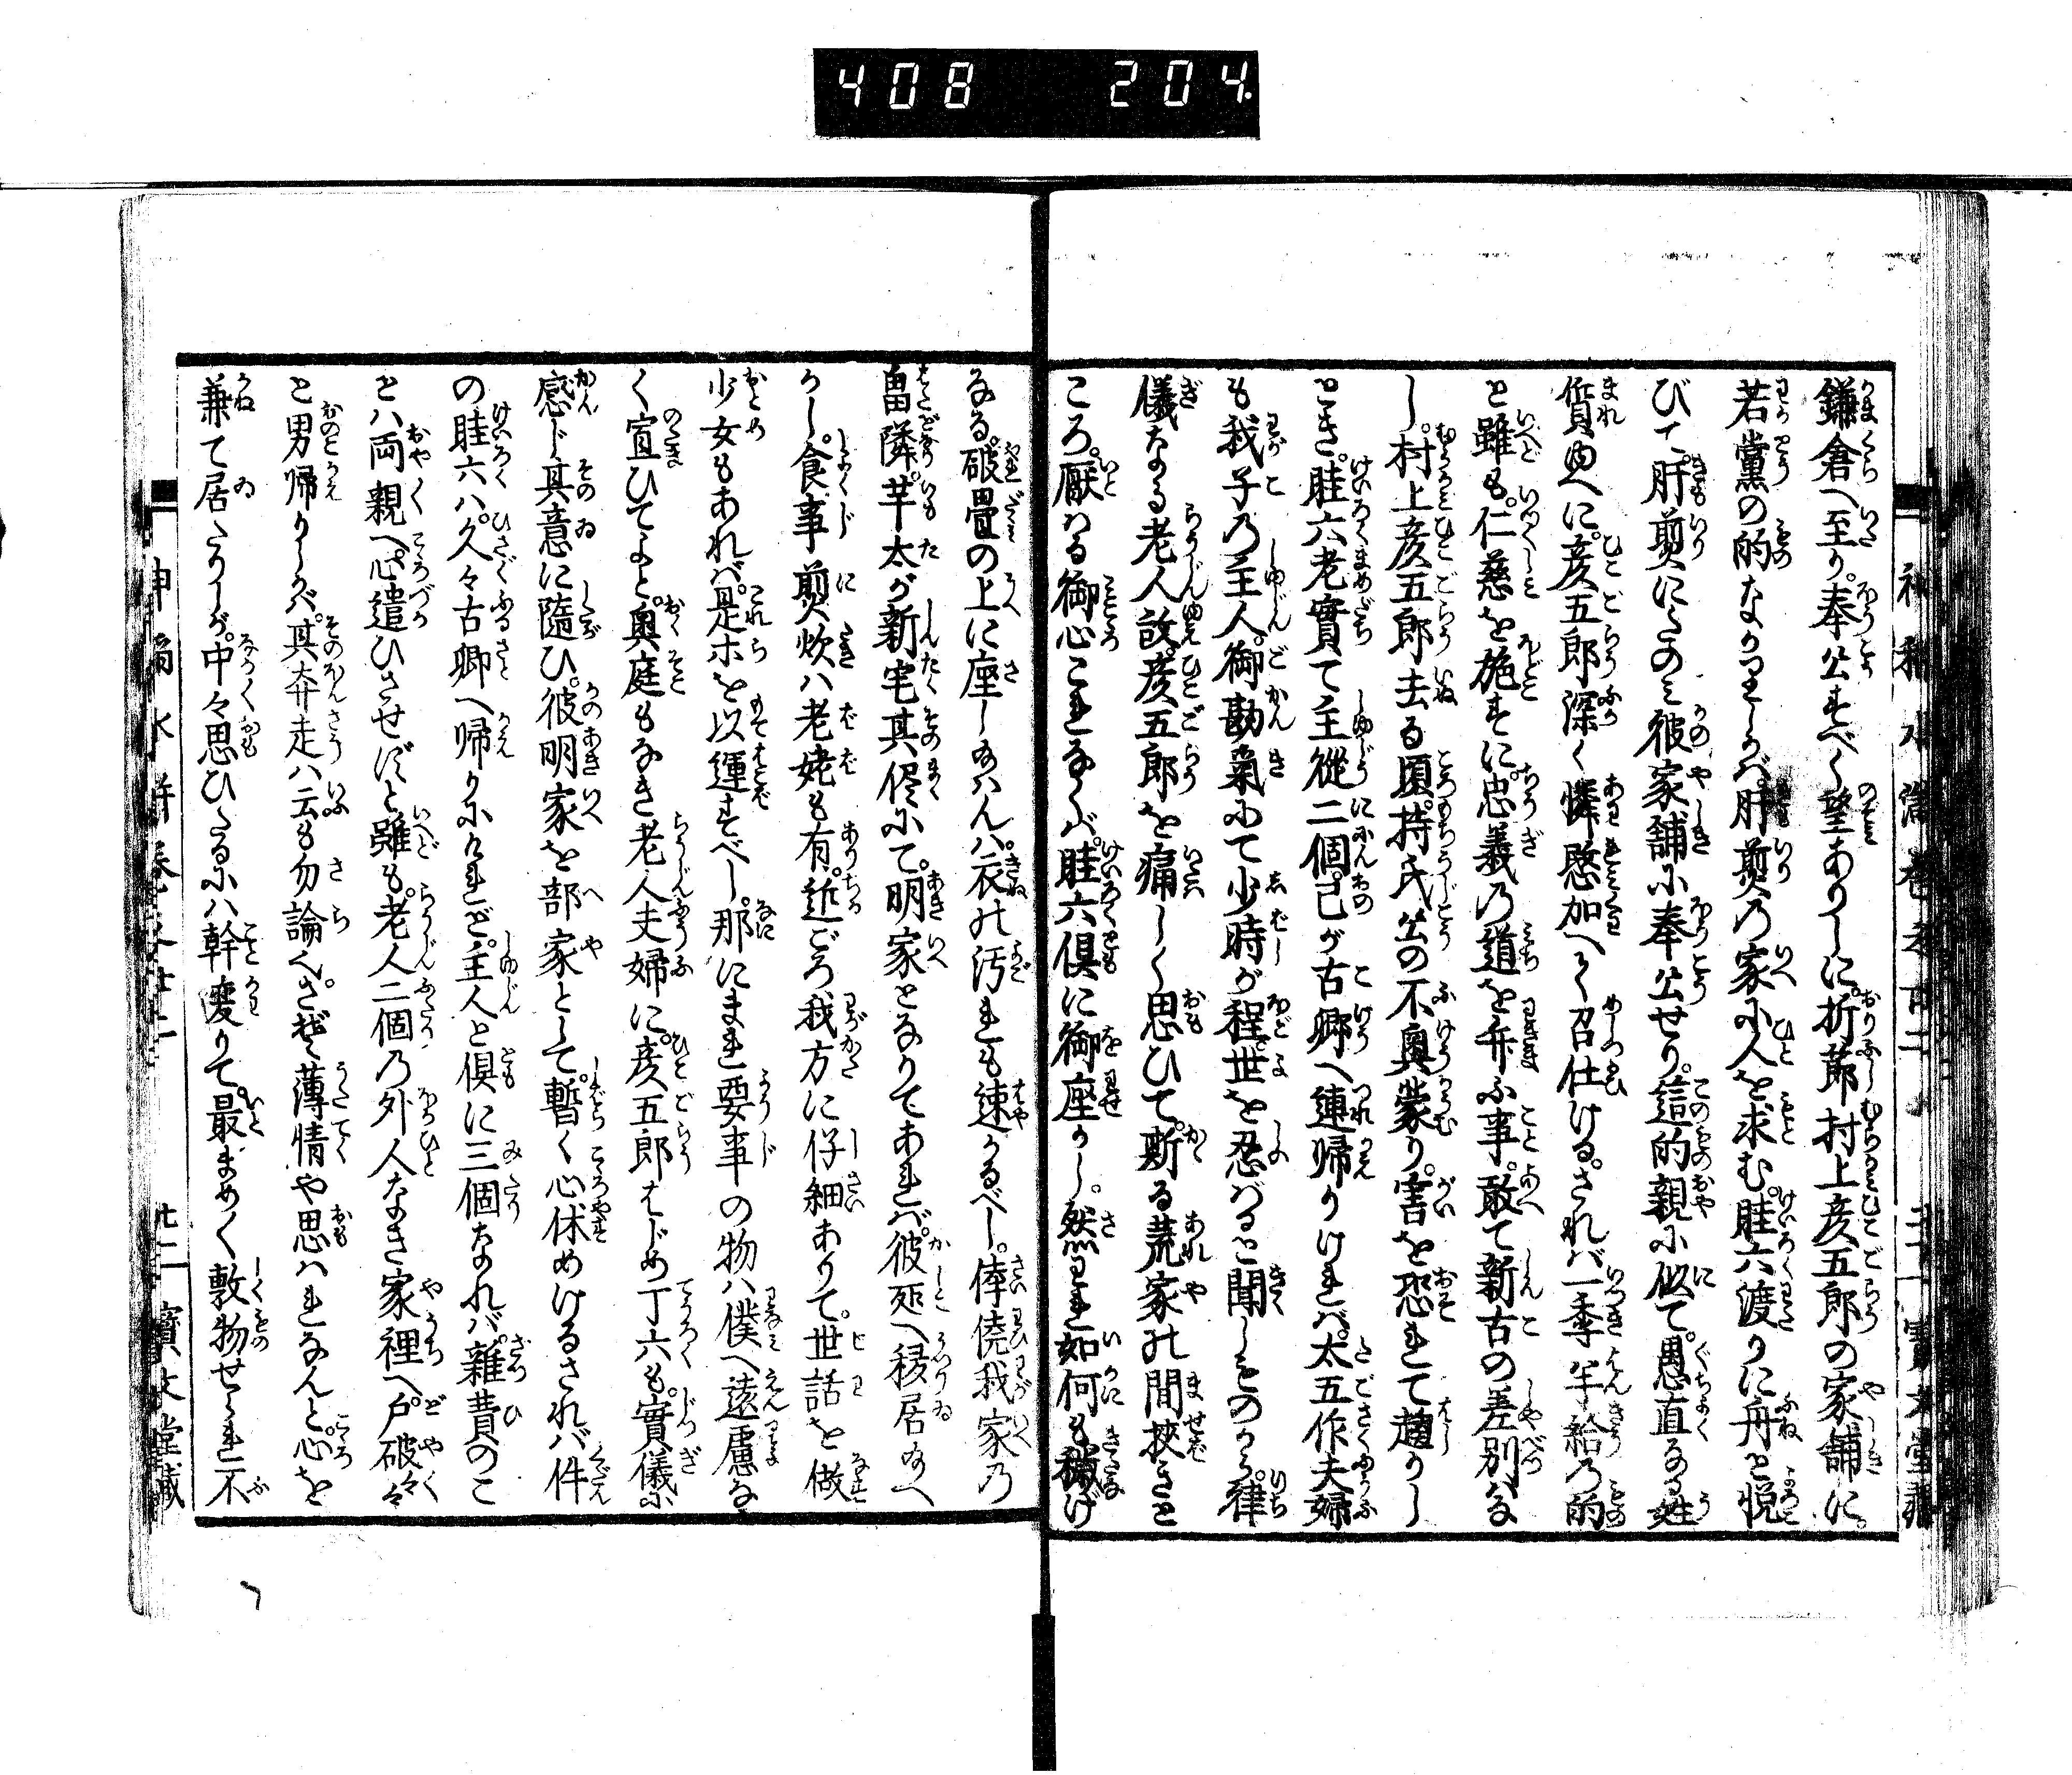 408 204.
鎌倉へ至り。奉公すべく望ありしに。折節村上彦五郎の家舗に。
若黨の的なかりしかバ。肝煎の家に人を求む。眭六渡りに舟と悦
びて。肝煎にたのミ彼家舗に奉公せり。這的親に似て。愚直なる姓
質ゆへに。彦五郎深く憐愍加へて召仕ける。されバ一季半給の的
と雖も。仁慈を施すに。忠義の道を弁ふ事。敢て新古の差別はな
し。村上彦五郎去る頃。持氏公の不興蒙り。害を恐れて趨りし
とき。眭六老實て主從二個。己が古郷へ連帰りけれバ。太五作夫婦
も我子の主人。御勘氣にて少時が程。世を忍バると聞しものから。律
儀なる老人故。彦五郎を痛しく思ひて。斯る荒家の間狹きと
ころ。厭はる御心これなくバ。眭六倶に御座かし。然れ如何も穢げ
なる。破畳の上に座し給ハんハ。衣の汚れも速かるべし。倖僥我家の
畠隣。芋太が新宅其侭にて。明家となりてあれバ。彼処へ移居給へ
かし。食事煎炊ハ老姥も有。近ごろ我方に仔細ありて。世話を做
少女もあれバ。是ホを以運すべし。那にまれ要事の物ハ僕へ遠慮な
く宣ひてよと。奥庭もなき老人夫婦に。彦五郎はじめ丁六も。實儀に
感じ其意に隨ひ。彼明家を部家として。暫く心休めけるされバ件
の眭六ハ。久々古郷へ帰りにけれど。主人と倶に三個なれバ。雜費のこ
とハ両親へ。心遣ひさせじと雖も。老人二個の外人なき家裡へ。戸破々々
と男帰りしかバ。其奔走ハ云も勿論へ。さぞ薄情や思はれなんと。心を
兼て居たりしが。中々思ひたるにハ幹變りて。最まめく敷物せられ不